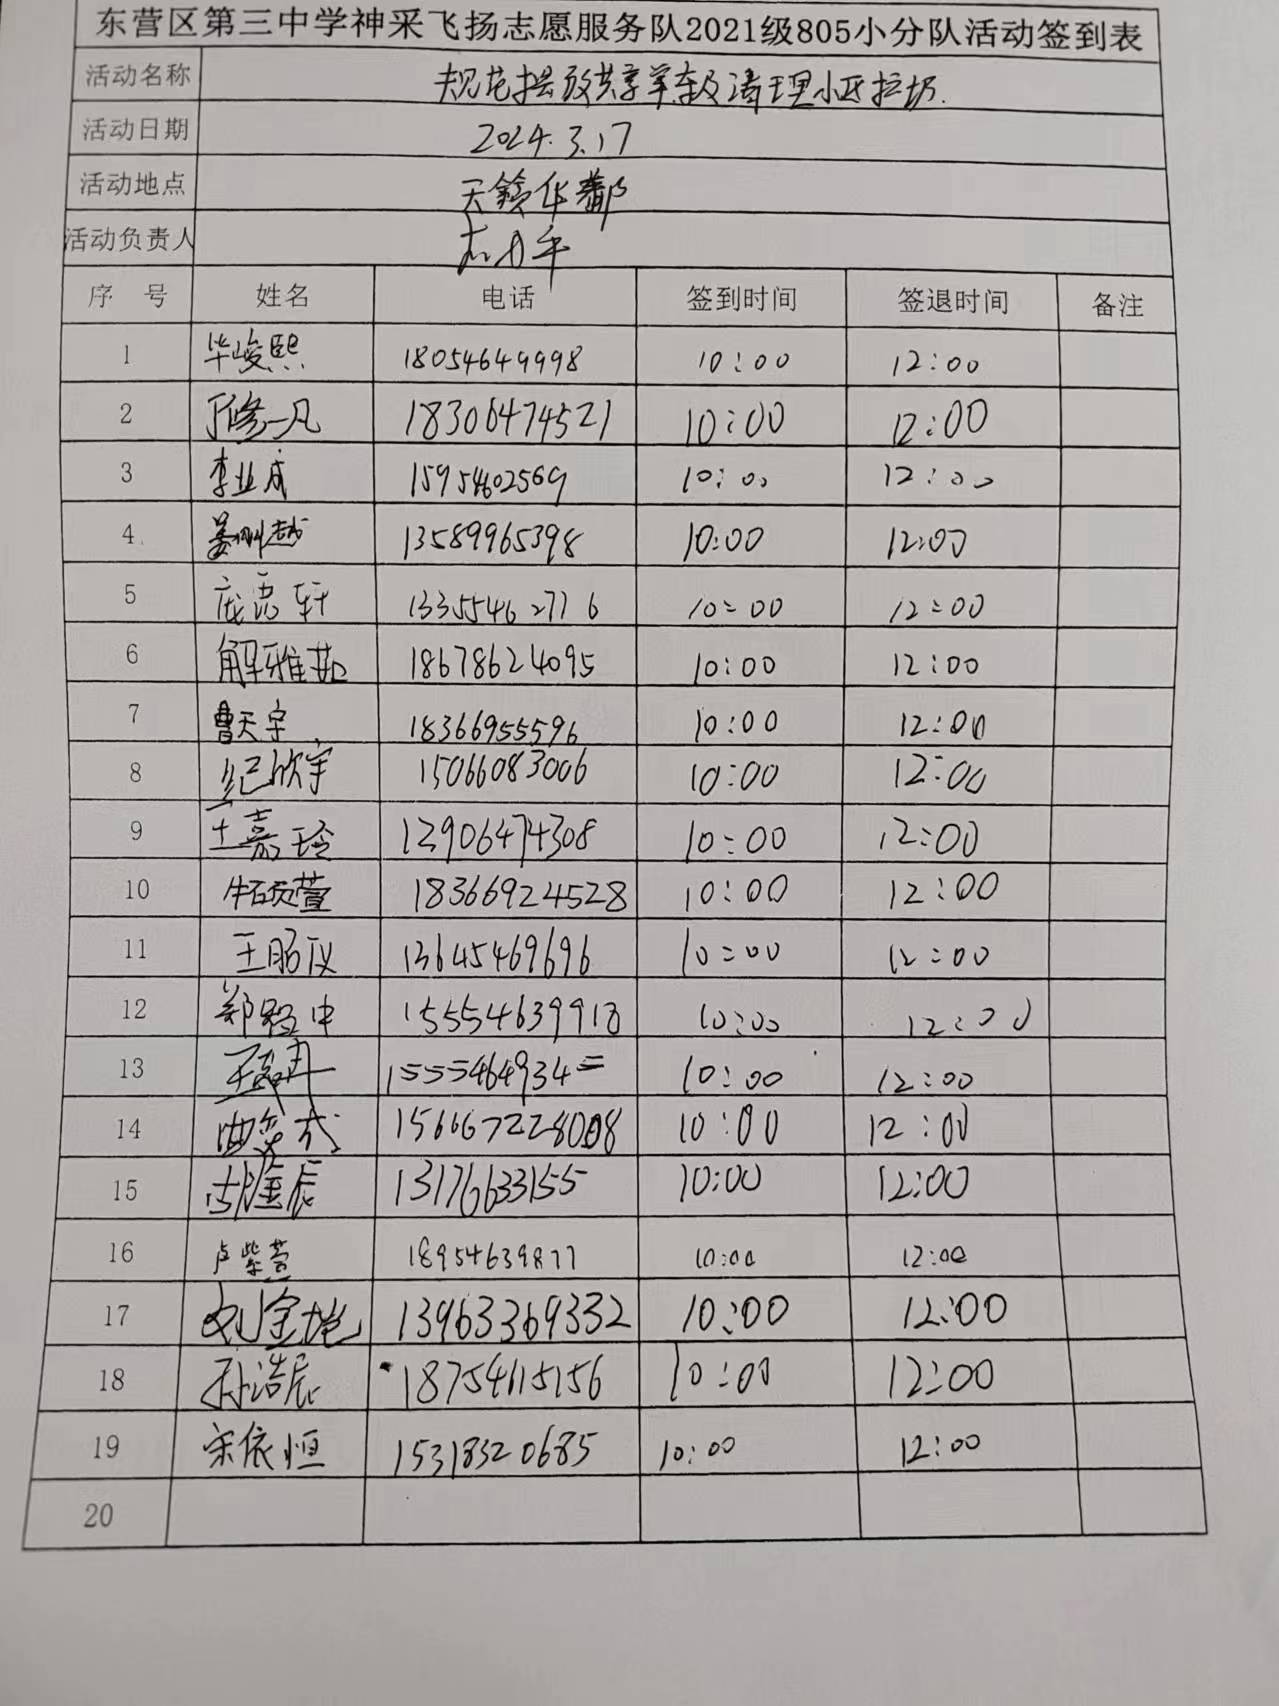 东营区第三中学神采飞扬志愿服务队2021级805小分队活动签到表
活动名称 规范摆放共享单车及清理小区垃圾.
活动日期 2024.3.17
活动地点 天鑽华都
活动负责人
序 号 姓名 电话 签到时间 签退时间 备注
1 毕峻熙 18054649998 10:00 12:00
2 修一凡 18306474521 10:00 12:00
3 李业成 15954602569 10:00 12:00
4 姜洲越 13589965398 10:00 12:00
5 庞惠轩 13355462776 10:00 12:00
6 解雅茹 18678624095 10:00 12:00
7 曹天宇 18366955596 10:00 12:00
8 纪欣宇 15066083006 10:00 12:00
9 王嘉玲 13906474308 10:00 12:00
10 牛硕萱 18366924528 10:00 12:00
11 王昭仪 13645469696 10:00 12:00
12 郑程中 15554639918 10:00 12:00
13 10:00 12:00
14 10:00 12:00
15 胡隆辰 13176633155 10:00 12:00
16 卢紫萱 18954639877 10:00 12:00
17 刘金垲 13963369332 10:00 12:00
18 孙浩辰 18754615156 10:00 12:00
19 宋依恒 15318320685 10:00 12:00
20